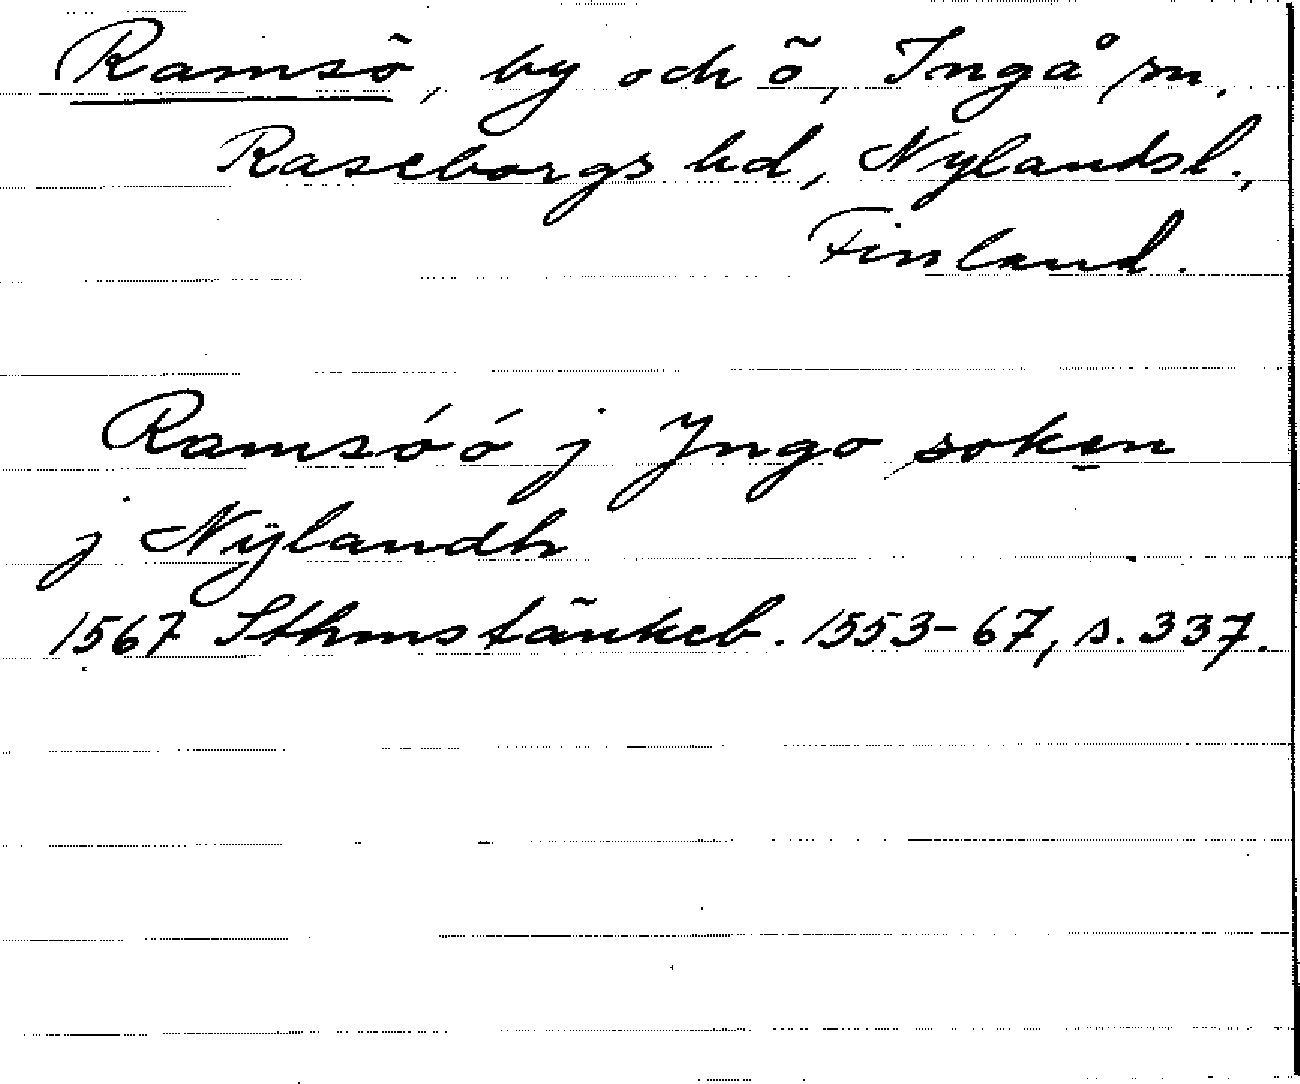 Ramsö, by och ö, Ingå sn.
Raseborgs hd, Nylandsl.,
Finland.
Ramsóó j Jngo soken
j Nÿlandh
1567 Sthms tänkeb. 1553-67, s. 337.